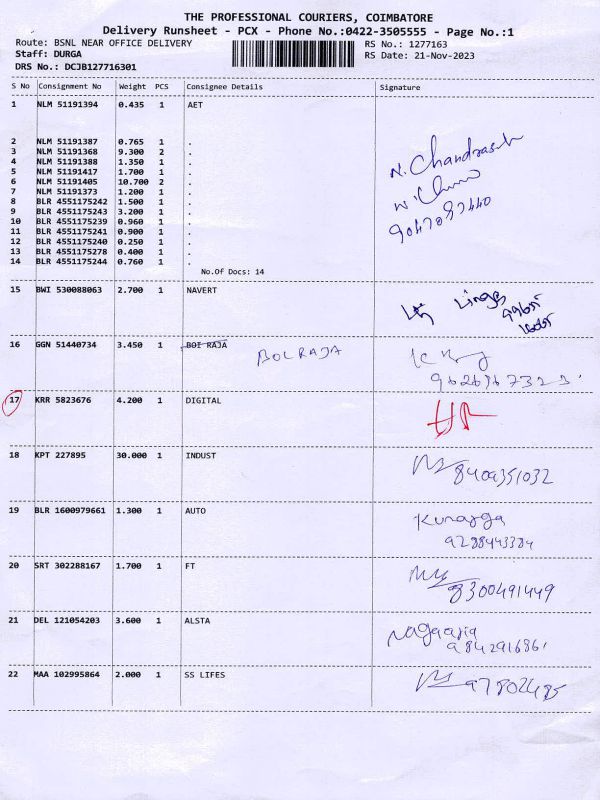 THE PROFESSIONAL COURIERS, COIMBATORE
Delivery Runsheet - PCX - Phone No.:0422-3505555 - Page No.:1
Route: BSNL NEAR OFFICE DELIVERY RS No.: 1277163
Staff: DURGA RS Date: 21-Nov-2023
DRS No.: DCJB127716301
S No Consignment No Weight PCS Consignee Details Signature
1 NLM 51191394 0.435 1 AET
2 NLM 51191387 0.765 1 .
3 NLM 51191368 9.300 2 .
4 NLM 51191388 1.350 1 .
5 NLM 51191417 1.700 1 .
6 NLM 51191405 10.700 2 .
7 NLM 51191373 1.200 1 .
8 BLR 4551175242 1.500 1 .
9 BLR 4551175243 3.200 1 .
10 BLR 4551175239 0.960 1 .
11 BLR 4551175241 0.900 1 .
12 BLR 4551175240 0.250 1 .
13 BLR 4551175278 0.400 1 .
14 BLR 4551175244 0.760 1 .
No.Of Docs: 14
N. Chandrasek
9047087440
15 BWI 530088063 2.700 1 NAVERT
16 GGN 51440734 3.450 1 BOI RAJA
BOLRAJA
17 KRR 5823676 4.200 1 DIGITAL
18 KPT 227895 30.000 1 INDUST
8409351032
19 BLR 1600979661 1.300 1 AUTO
9288443384
20 SRT 302288167 1.700 1 FT
8300491449
21 DEL 121054203 3.600 1 ALSTA
9842916861
22 MAA 102995864 2.000 1 SS LIFES
97802485